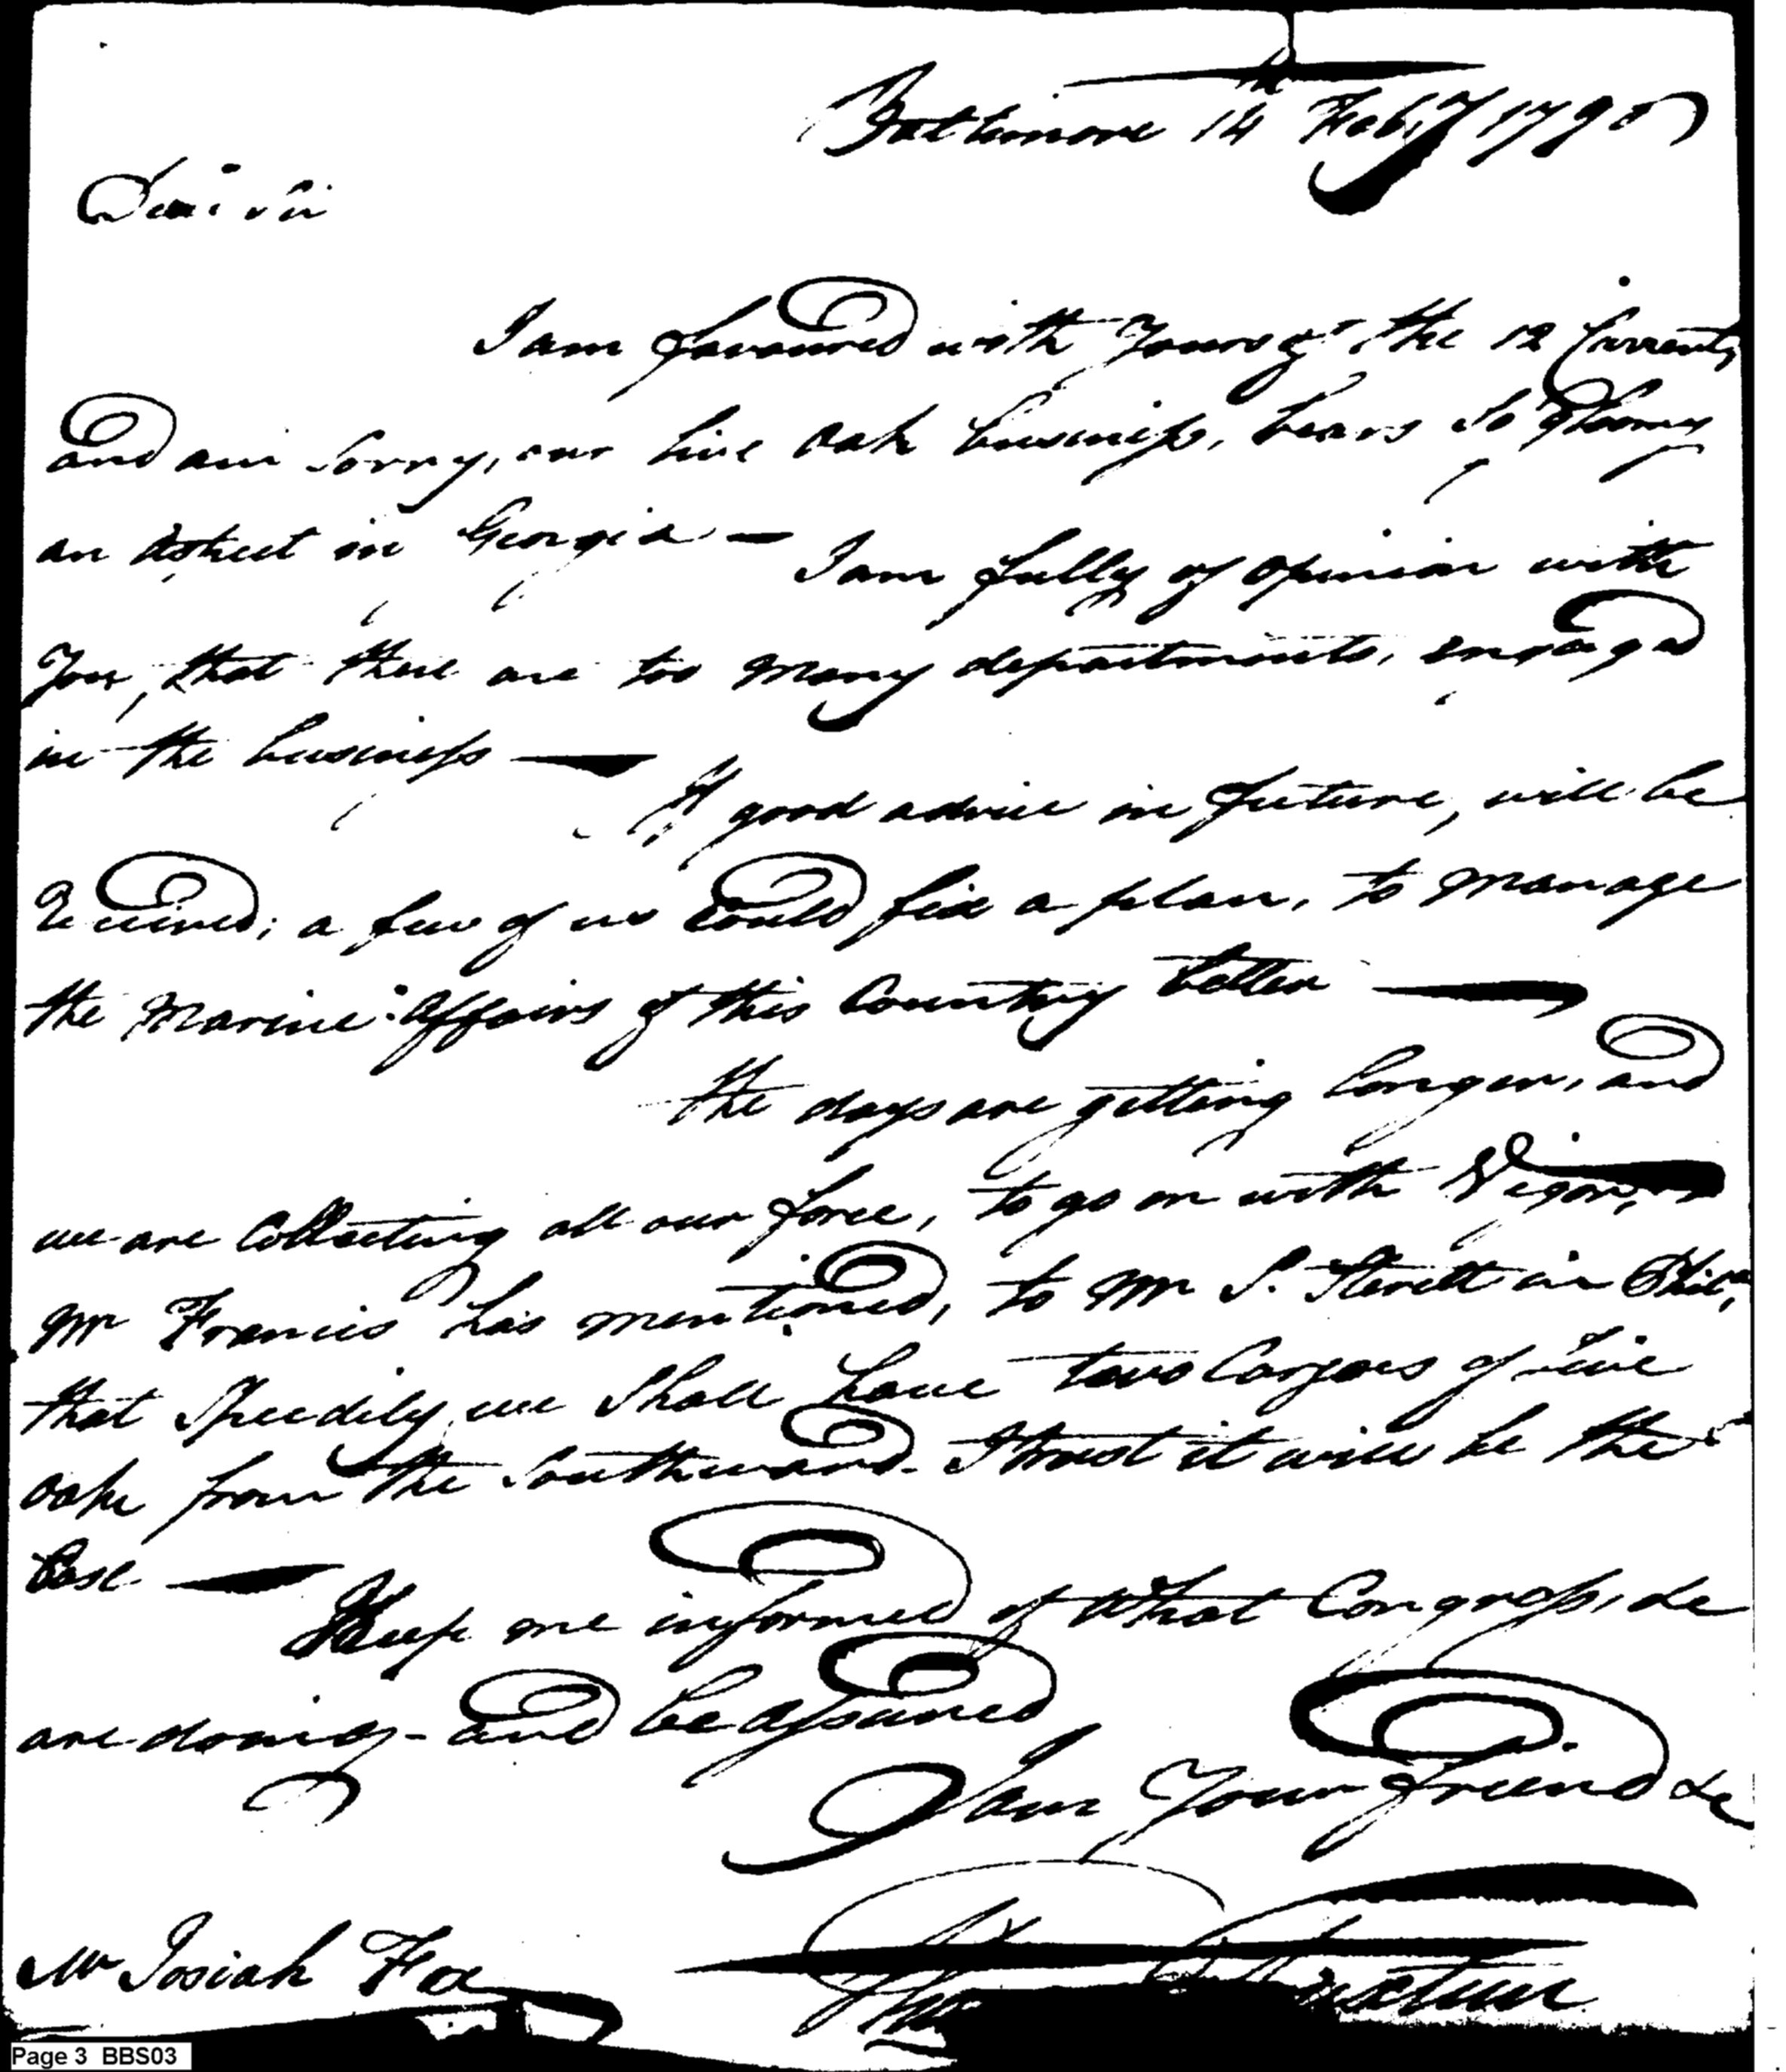 Baltimore 14th Feby 1795
Dear Sir
I am favoured with Yours of the 12 Current,
and am Sorry, our live Oak business, bears So Gloomy
an aspect in Georgia — I am fully of opinion with
You, that there are too many departments, engaged
in the business —
If good advice in future, will be
Received; a few of us Could fix a plan, to manage
the Marine Affairs of this Country better —
the days are getting longer, and
we are Collecting all our force, to go on with Vigor,
Mr Francis has mentioned, to Mr S. Sterett in Phila,
that Speedily we Shall have two Cargoes of live
Oake from the Southward - I trust it will be the
Case —
Keep me informed of What Congress, &c
are doing - and be assured
I am Your friend &c
Mr Josiah Fox
Page 3 BBS03